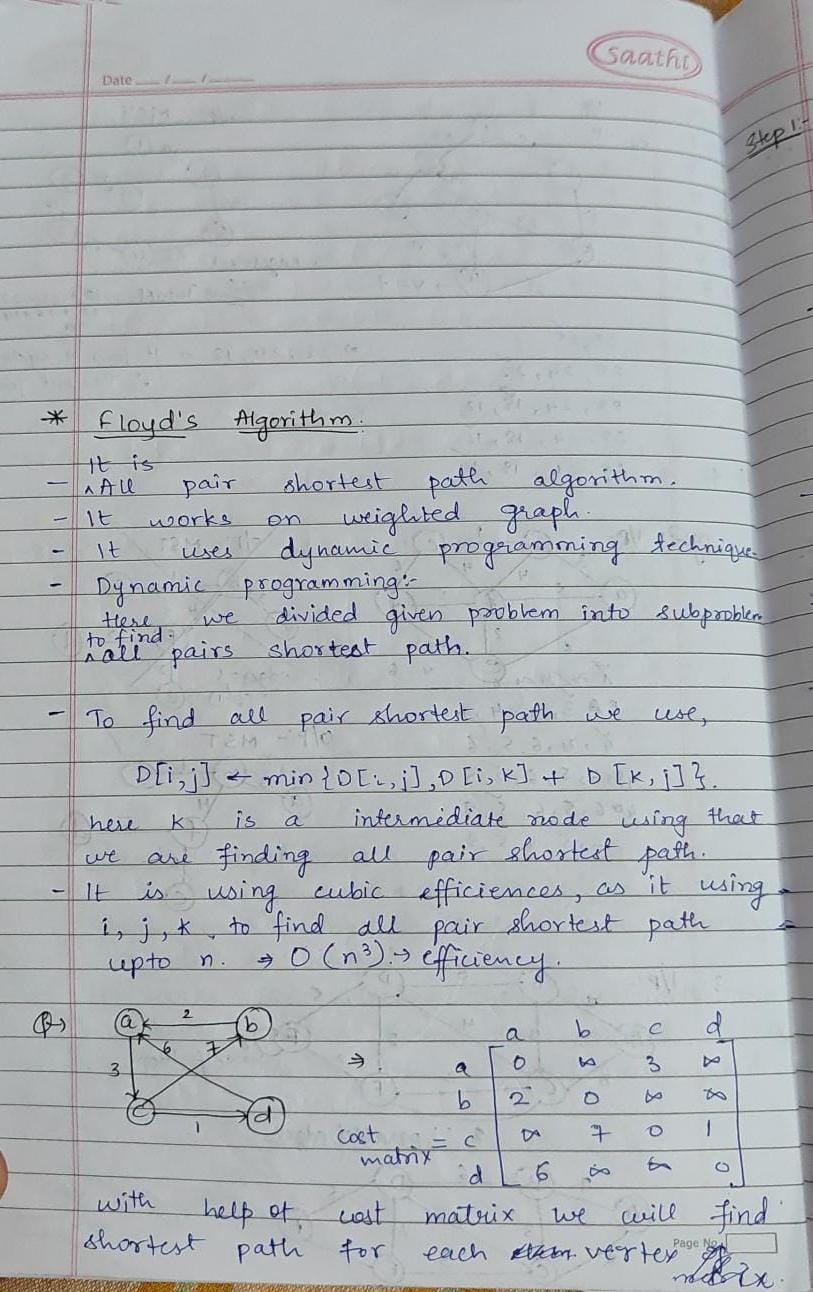 saathi
Date __/__/____
Step 1:-
* Floyd's Algorithm.
It is
- ^ All pair shortest path algorithm.
- It works on weighted graph.
- It uses dynamic programming technique.
- Dynamic programming:-
Here, we divided given problem into subproblem
to find.
^ all pairs shortest path.
- To find all pair shortest path we use,
D[i,j] ← min {D[i,j], D[i,k] + D[k,j]}.
here k is a intermediate node using that
we are finding all pair shortest path.
- It is using cubic efficiences, as it using
i, j, k, to find all pair shortest path
upto n. ⇒ O(n³) → efficiency.
Q→ a 2 b
3 6 7
c 1 d
⇒ a b c d
a 0 ∞ 3 ∞
b 2 0 ∞ ∞
cost matrix = c ∞ 7 0 1
d 6 ∞ ∞ 0
with help of cost matrix we will find
shortest path for each vertex of
matrix.
Page No.